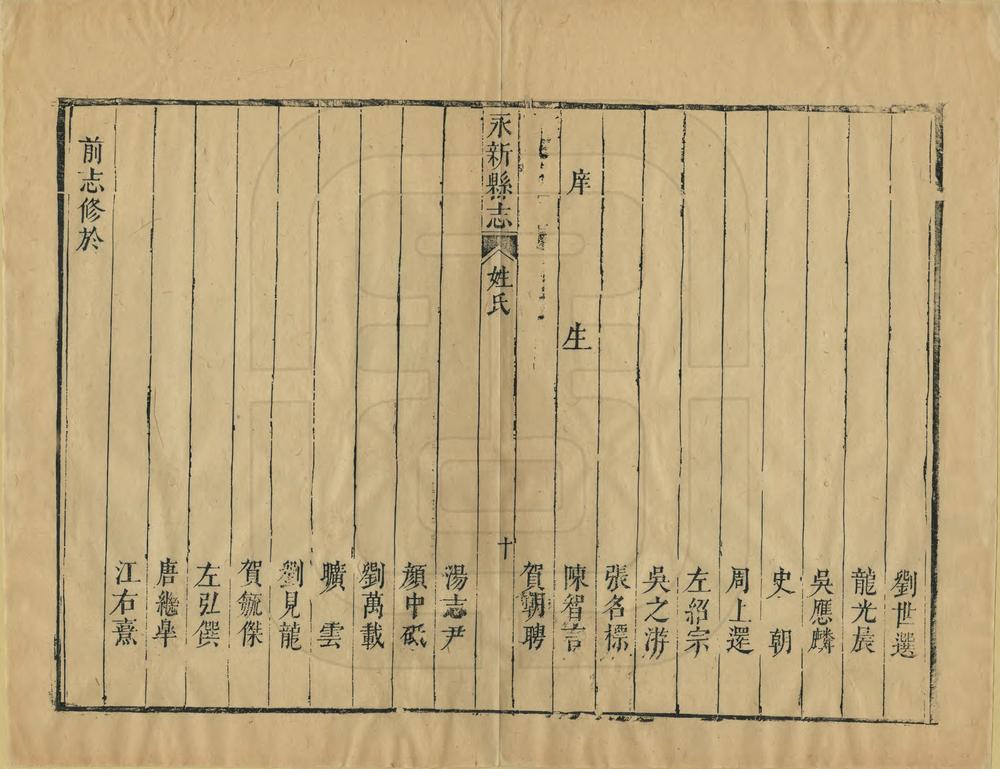 劉世選
龍光晨
吳應麟
史朝
周上選
左紹宗
吳之游
張名標
庠生 陳智言
賀朝聘
永新縣志 姓氏 十
湯志尹
顏中砥
劉萬載
曠雲
劉見龍
賀毓傑
左弘僎
唐繼皋
江右熹
前志修於